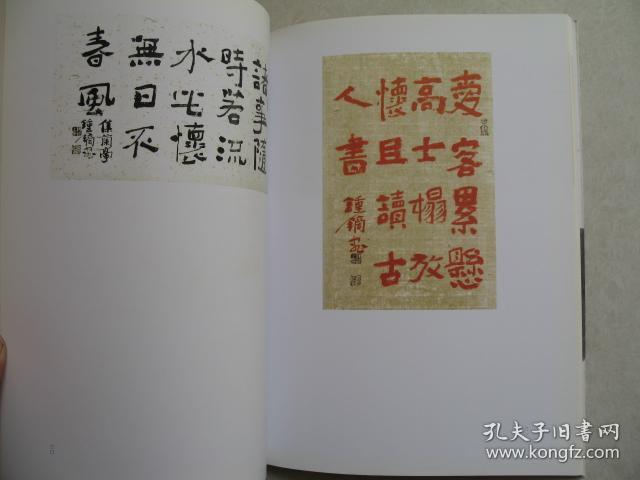 諸事隨
時若流
水此懷
無日不
春風
集蘭亭
愛客累懸
高士榻放
懷且讀古
人書
孔夫子旧书网
www.kongfz.com